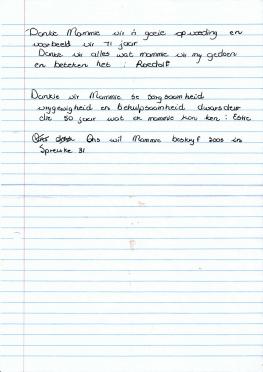 Danke Mammie vir 'n goeie opvoeding en
voorbeeld vir 71 jaar
Dankie vir alles wat mammie vir my gedoen
en beteken het : Roedolf
Dankie vir Mammie se sorgsaamheid
vrygewigheid en behulpsaamheid dwarsdeur
die 50 jaar wat ek mammie kon ken : Estie
Ons wil Mammie beskryf soos in
Spreuke 31